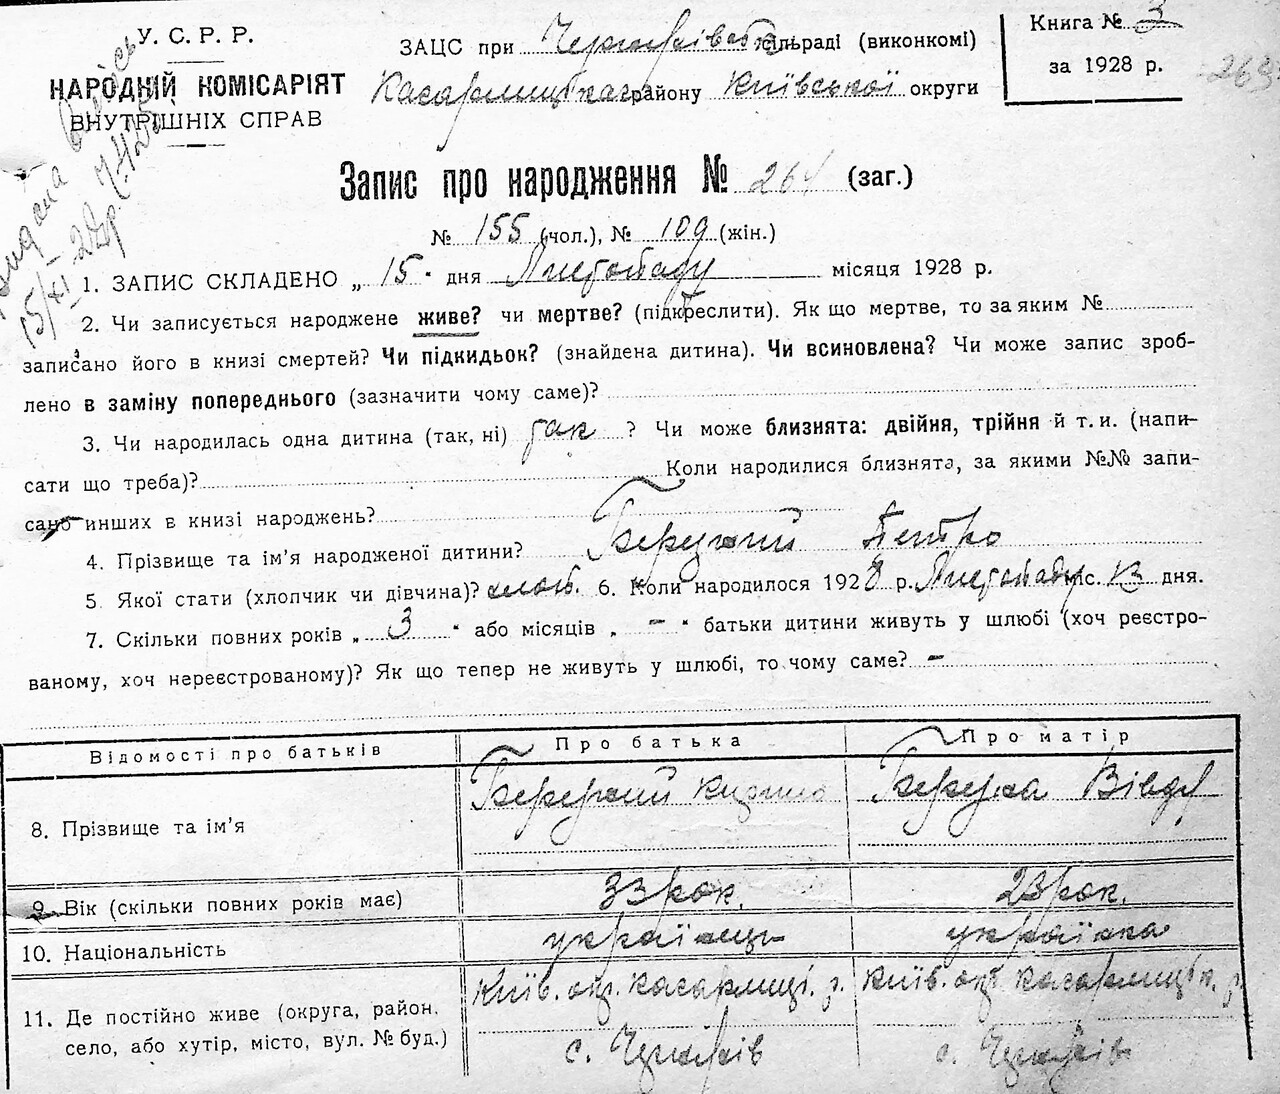 У. С. Р. Р.
НАРОДНІЙ КОМІСАРІЯТ
ВНУТРІШНІХ СПРАВ
ЗАЦС при сільраді (виконкомі)
району Київської округи
Книга № 3
за 1928 р.
Запис про народження № 264 (заг.)
№ 155 (чол.), № 109 (жін.)
1. ЗАПИС СКЛАДЕНО „ 15 " дня Листопаду місяця 1928 р.
2. Чи записується народжене живе? чи мертве? (підкреслити). Як що мертве, то за яким №
записано його в книзі смертей? Чи підкидьок? (знайдена дитина). Чи всиновлена? Чи може запис зроб-
лено в заміну попереднього (зазначити чому саме)?
3. Чи народилась одна дитина (так, ні) так ? Чи може близнята: двійня, трійня й т. и. (напи-
сати що треба)? Коли народилися близнята, за якими №№ запи-
сано инших в книзі народжень?
4. Прізвище та ім'я народженої дитини? Петро
5. Якої стати (хлопчик чи дівчина)? 6. Коли народилось 1928 р. Листопаду міс. 13 дня.
7. Скільки повних років „ 3 " або місяців „ – " батьки дитини живуть у шлюбі (хоч реєстро-
ваному, хоч нереєстрованому)? Як що тепер не живуть у шлюбі, то чому саме? –
Відомості про батьків Про батька Про матір
8. Прізвище та ім'я Кирило
9. Вік (скільки повних років має) 33 рок. 23 рок.
10. Національність українець українка
11. Де постійно живе (округа, район, село, або хутір, місто, вул. № буд.) Київ. окр. р. с. Київ. окр. р. с.